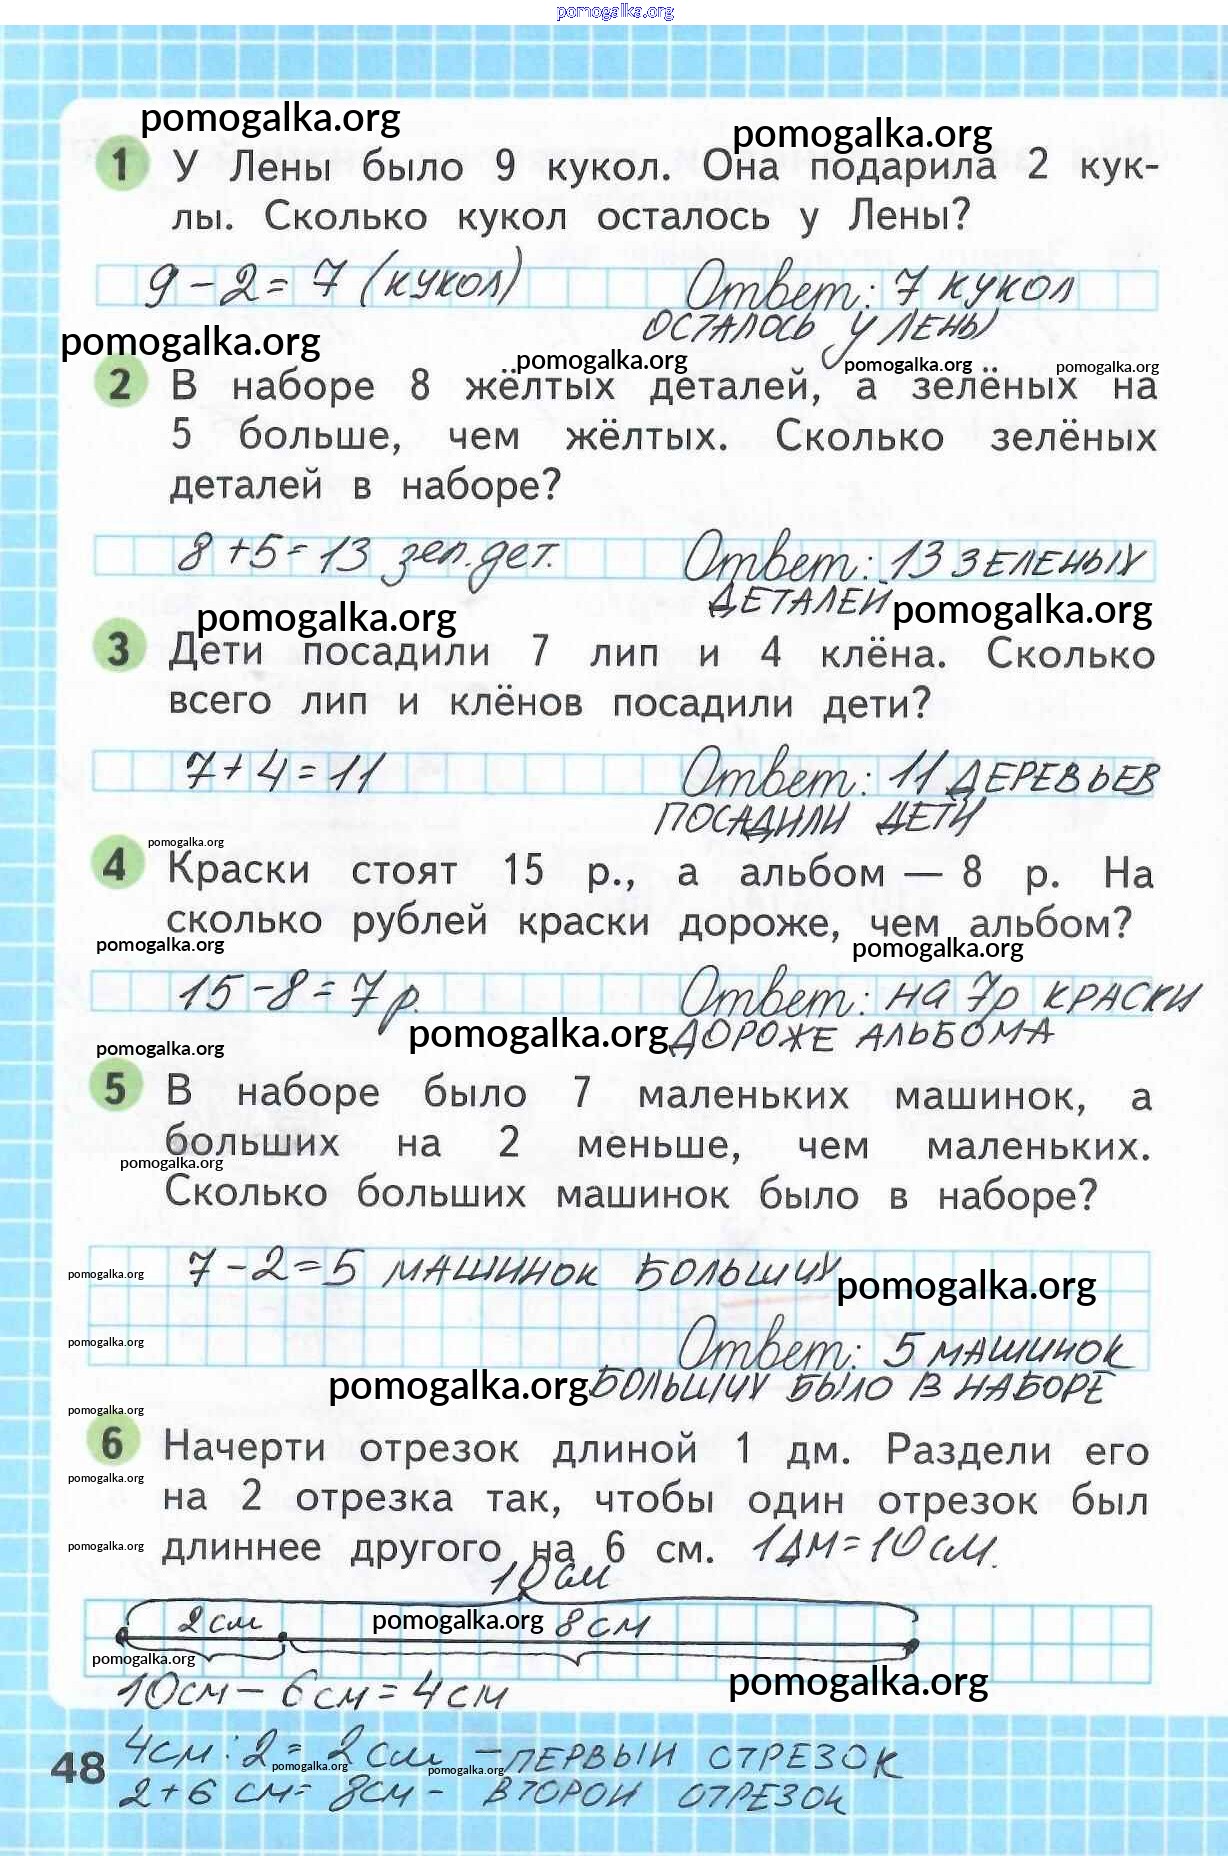 pomogalka.org
pomogalka.org
pomogalka.org
1 У Лены было 9 кукол. Она подарила 2 кук-
лы. Сколько кукол осталось у Лены?
9 - 2 = 7 (кукол) Ответ: 7 кукол
осталось у Лены
pomogalka.org
pomogalka.org
pomogalka.org
pomogalka.org
2 В наборе 8 жёлтых деталей, а зелёных на
5 больше, чем жёлтых. Сколько зелёных
деталей в наборе?
8 + 5 = 13 зел. дет. Ответ: 13 зеленых
деталей
pomogalka.org
pomogalka.org
3 Дети посадили 7 лип и 4 клёна. Сколько
всего лип и клёнов посадили дети?
7 + 4 = 11 Ответ: 11 деревьев
посадили дети
pomogalka.org
4 Краски стоят 15 р., а альбом — 8 р. На
сколько рублей краски дороже, чем альбом?
pomogalka.org
pomogalka.org
15 - 8 = 7 р. Ответ: на 7р краски
дороже альбома
pomogalka.org
pomogalka.org
5 В наборе было 7 маленьких машинок, а
больших на 2 меньше, чем маленьких.
pomogalka.org
Сколько больших машинок было в наборе?
7 - 2 = 5 машинок большиу
pomogalka.org
pomogalka.org
pomogalka.org
Ответ: 5 машинок
большиу было в наборе
pomogalka.org
pomogalka.org
6 Начерти отрезок длиной 1 дм. Раздели его
pomogalka.org
на 2 отрезка так, чтобы один отрезок был
длиннее другого на 6 см. 1дм = 10 см.
pomogalka.org
10 см
2 см 8 см
pomogalka.org
pomogalka.org
pomogalka.org
10см - 6 см = 4 см
4см : 2 = 2 см - первый отрезок
pomogalka.org
pomogalka.org
48
2 + 6 см = 8см - второй отрезок